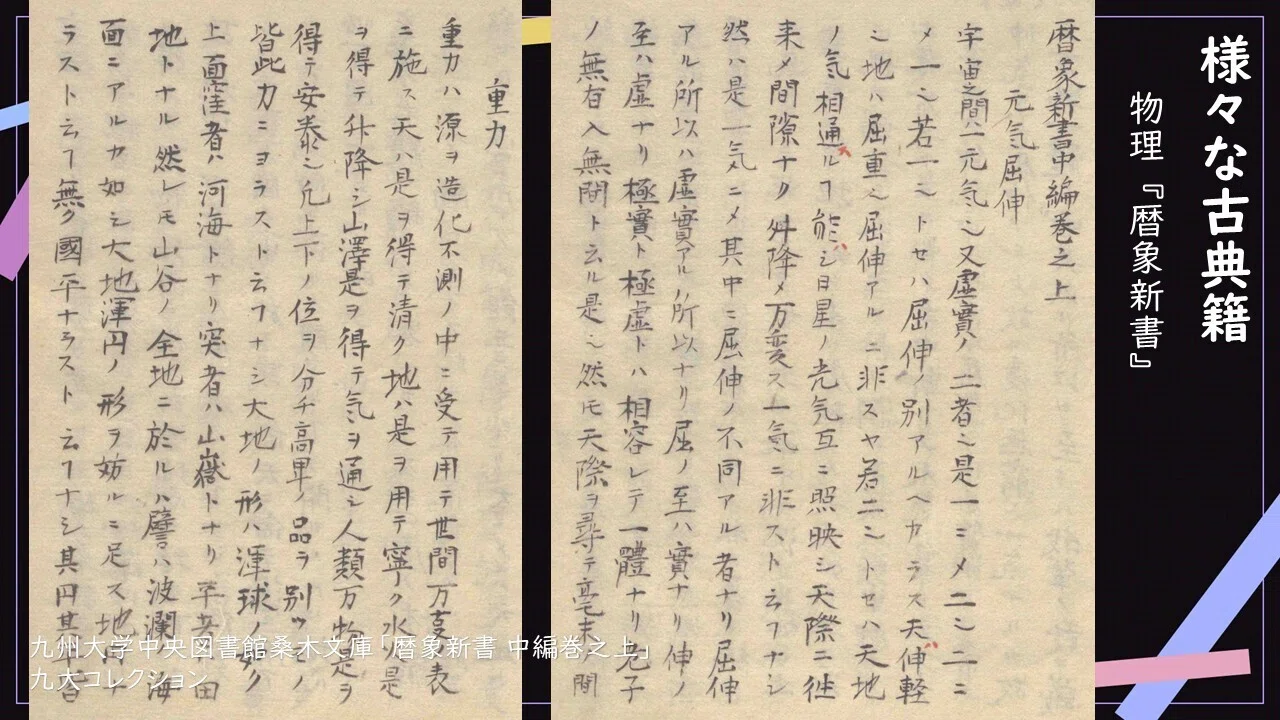 様々な古典籍
物理『暦象新書』
暦象新書中編巻之上
元気屈伸
宇宙之間ハ一元気ニ〆又虚實ノ二者ニ是一ニ〆二ニ二ニ
〆一ニ若一ニトセハ屈伸ノ別アルヘカラス天伸軽
ニ地ハ屈重ニ屈伸アルニ非スヤ若二ニトセハ天地
ノ気相通ルヿ能ハシ日星ノ光気互ニ照映シ天際ニ徃
来〆間隙ナク舛降〆万変ス一気ニ非スト云フナシ
然ハ是一気ニ〆其中ニ屈伸ノ不同アル者ナリ屈伸
アル所以ハ虚實アル所以ナリ屈ノ至ハ實ナリ伸ノ
至ハ虚ナリ極實ト極虚トハ相容レテ一體ナリ老子
ノ無有入無間ト云ル是ニ然モ天際ヲ尋テ毫末ノ間
重力
重力ハ源ヲ造化不測ノ中ニ受テ用テ世間万变表
ニ施ス天ハ是ヲ得テ清ク地ハ是ヲ用テ寧ク水是
ヲ得テ升降シ山澤是ヲ得テ気ヲ通シ人類万物是ヲ
得テ安泰ニ凡上下ノ位ヲ分チ高卑ノ品ヲ別ツ
皆此力ニヨラスト云フナシ大地ノ形ハ渾球ノ
上面窪者ハ河海トナリ突者ハ山嶽トナリ平者
地トナル然レモ山谷ノ全地ニ於ルハ譬ハ波瀾ノ海
面ニアルカ如シ大地渾円ノ形ヲ妨ルニ足ス地
ラスト云フ無ク國平ナラスト云フナシ其円其
九州大学中央図書館桑木文庫「暦象新書 中編巻之上」
九大コレクション